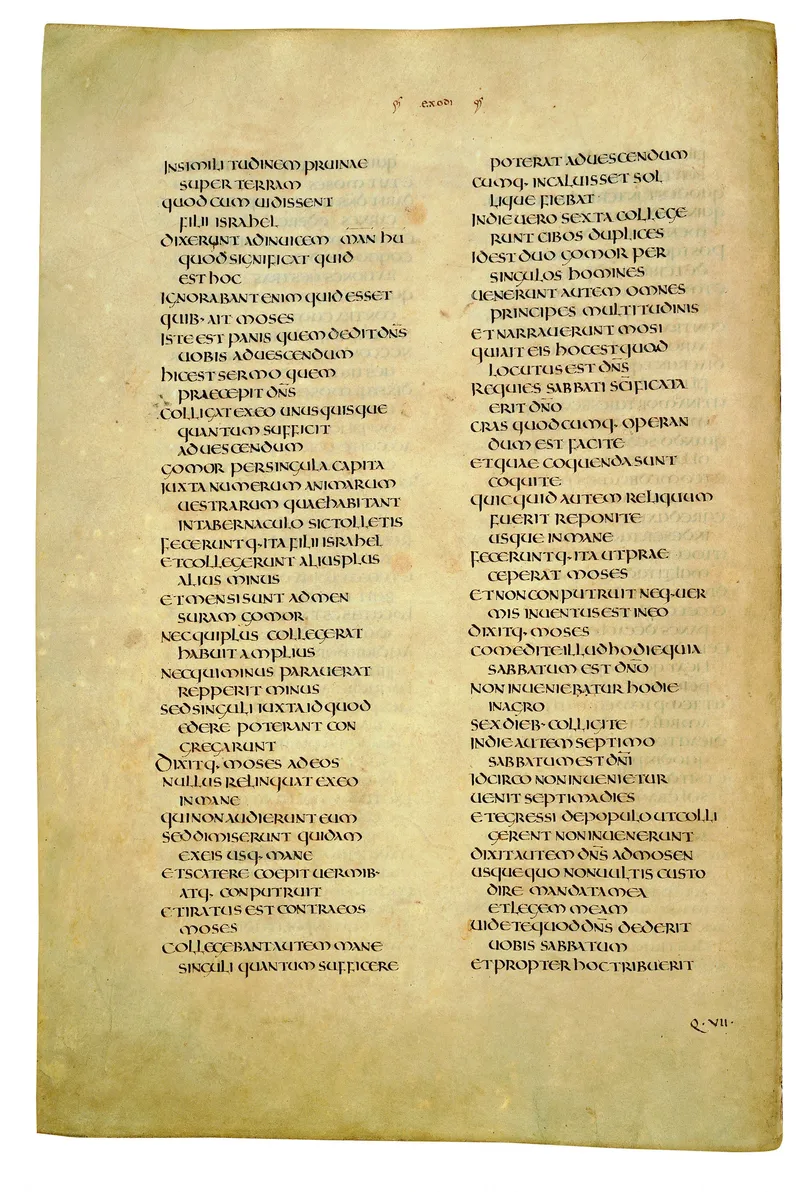 EXODI
INSIMILITUDINEM PRUINAE
SUPER TERRAM
QUOD CUM UIDISSENT
FILII ISRAHEL
DIXERUNT ADINUICEM MAN HU
QUOD SIGNIFICAT QUID
EST HOC
IGNORABANT ENIM QUID ESSET
QUIB· AIT MOSES
ISTE EST PANIS QUEM DEDIT DN̄S
UOBIS ADUESCENDUM
HIC EST SERMO QUEM
PRAECEPIT DN̄S
COLLIGAT EX EO UNUSQUISQUE
QUANTUM SUFFICIT
ADUESCENDUM
GOMOR PER SINGULA CAPITA
IUXTA NUMERUM ANIMARUM
UESTRARUM QUAE HABITANT
IN TABERNACULO SIC TOLLETIS
FECERUNTQ· ITA FILII ISRAHEL
ET COLLEGERUNT ALIUS PLUS
ALIUS MINUS
ET MENSI SUNT AD MEN
SURAM GOMOR
NEC QUI PLUS COLLEGERAT
HABUIT AMPLIUS
NEC QUI MINUS PARAUERAT
REPPERIT MINUS
SED SINGULI IUXTA ID QUOD
EDERE POTERANT CON
GREGARUNT
DIXITQ· MOSES AD EOS
NULLUS RELINQUAT EX EO
IN MANE
QUI NON AUDIERUNT EUM
SED DIMISERUNT QUIDAM
EX EIS USQ· MANE
ET SCATERE COEPIT UERMIB·
ATQ· CONPUTRUIT
ET IRATUS EST CONTRA EOS
MOSES
COLLEGEBANT AUTEM MANE
SINGULI QUANTUM SUFFICERE
POTERAT ADUESCENDUM
CUMQ· INCALUISSET SOL
LIQUEFIEBAT
IN DIE UERO SEXTA COLLEGE
RUNT CIBOS DUPLICES
ID EST DUO GOMOR PER
SINGULOS HOMINES
UENERUNT AUTEM OMNES
PRINCIPES MULTITUDINIS
ET NARRAUERUNT MOSI
QUI AIT EIS HOC EST QUOD
LOCUTUS EST DN̄S
REQUIES SABBATI SC̄IFICATA
ERIT DN̄O
CRAS QUODCUMQ· OPERAN
DUM EST FACITE
ET QUAE COQUENDA SUNT
COQUITE
QUICQUID AUTEM RELIQUUM
FUERIT REPONITE
USQUE IN MANE
FECERUNTQ· ITA UT PRAE
CEPERAT MOSES
ET NON CONPUTRUIT NEQ· UER
MIS INUENTUS EST IN EO
DIXITQ· MOSES
COMEDITE ILLUD HODIE QUIA
SABBATUM EST DN̄O
NON INUENIEBATUR HODIE
IN AGRO
SEX DIEB· COLLIGITE
IN DIE AUTEM SEPTIMO
SABBATUM EST DN̄I
IDCIRCO NON INUENIETUR
UENIT SEPTIMA DIES
ET EGRESSI DE POPULO UT COLLI
GERENT NON INUENERUNT
DIXIT AUTEM DN̄S AD MOSEN
USQUEQUO NON UULTIS CUSTO
DIRE MANDATA MEA
ET LEGEM MEAM
UIDETE QUOD DN̄S DEDERIT
UOBIS SABBATUM
ET PROPTER HOC TRIBUERIT
Q·VII·